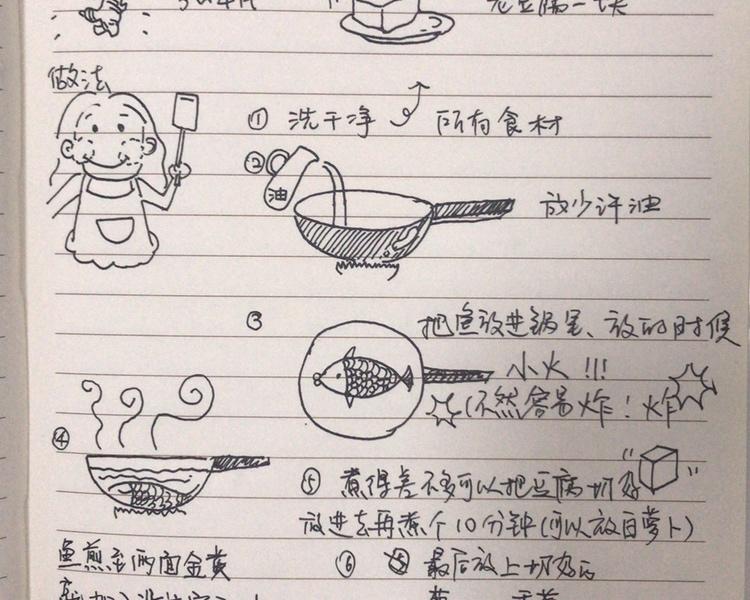 老豆腐一块
做法
① 洗干净 所有食材
②
油
放少许油
③ 把鱼放进锅里、放的时候
小火!!!
(不然容易炸!炸
④
⑤ 煮得差不多可以把豆腐切好
放进去再煮个10分钟(可以放白萝卜)
鱼煎至两面金黄
⑥ 最后放上切好的